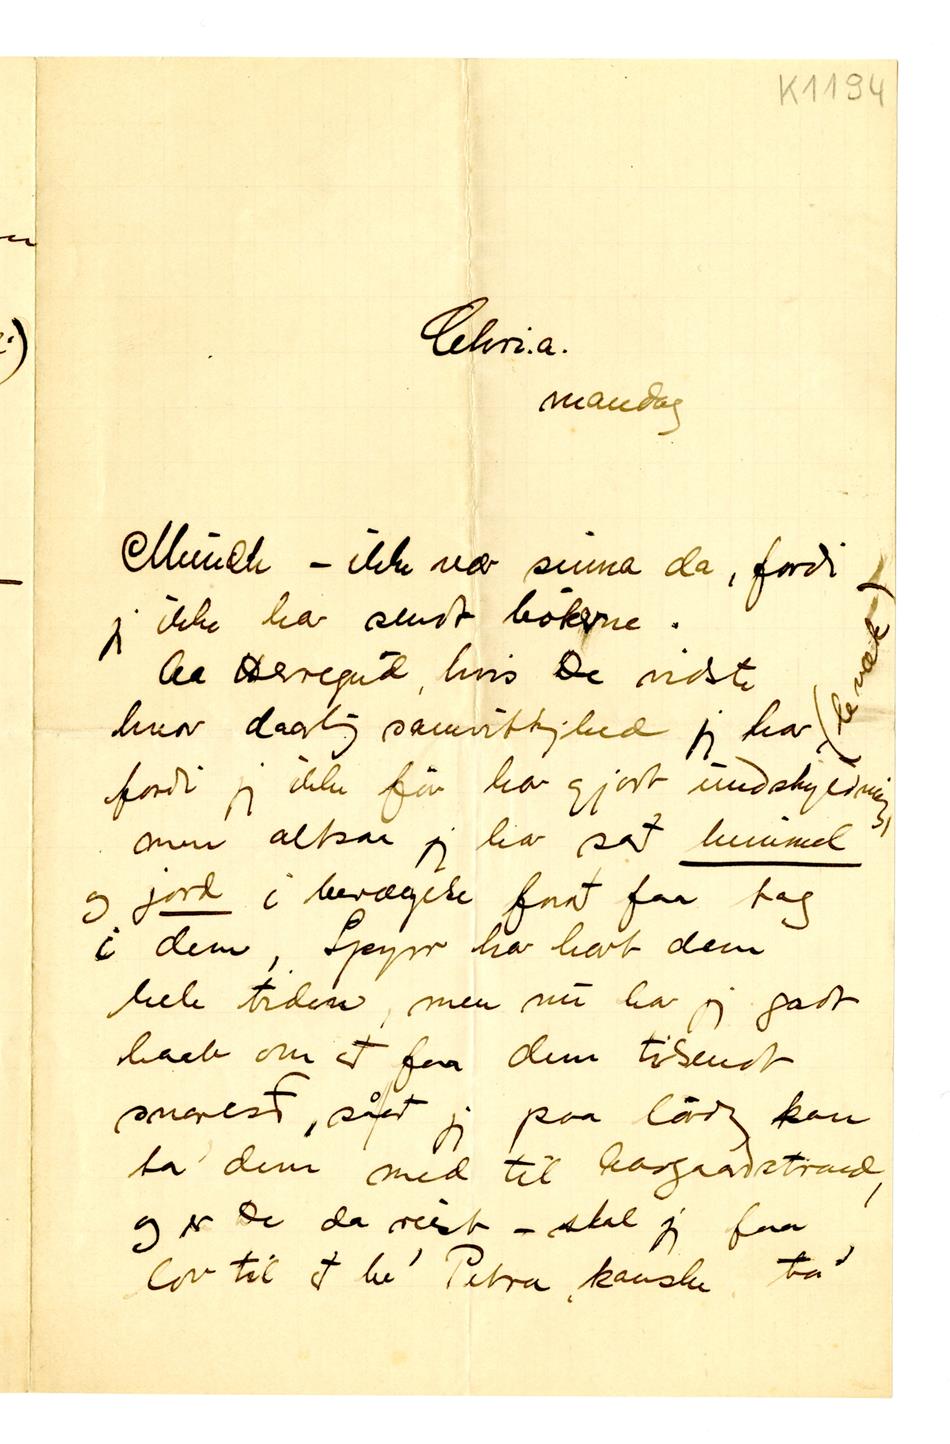 K1194
Chri.a.
mandag
Munch – ikke vær sinna da, fordi
jj ikke har sendt bökerne.
Aa Herregud, hvis De vidste
hvor daarlig samvittighed jj har,
fordi jj ikke för har gjort undskyldning,
men altsaa jj har sat himmel
og jord i bevægelse forat faa tag
i dem, har havt dem
hele tiden, men nu har jj godt
haab om at faa dem tilsendt
snarest, såat jj paa lördg kan
ta' dem med til Aasgaardstrand,
og er De da reist – skal jj faa
lov til at be' Petra, kanske ta'